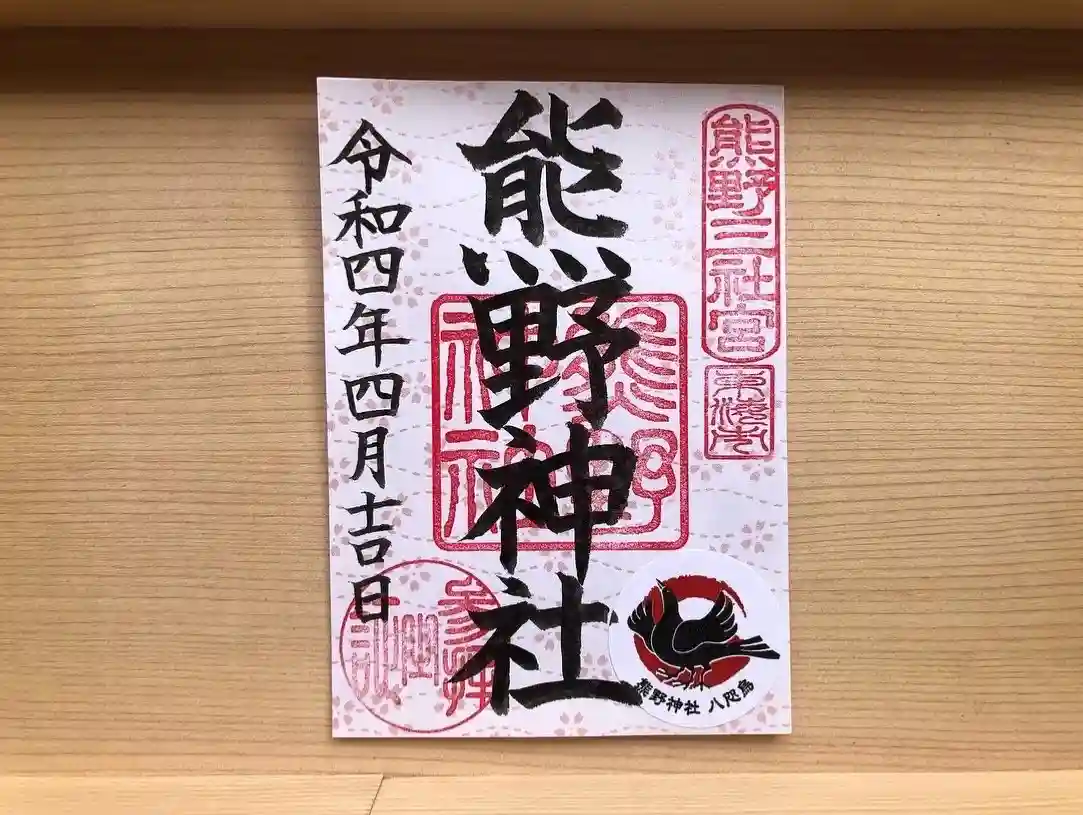 熊野三社宮
東海市
熊野神社
熊野神社
令和四年四月吉日
熊野神社 八咫烏